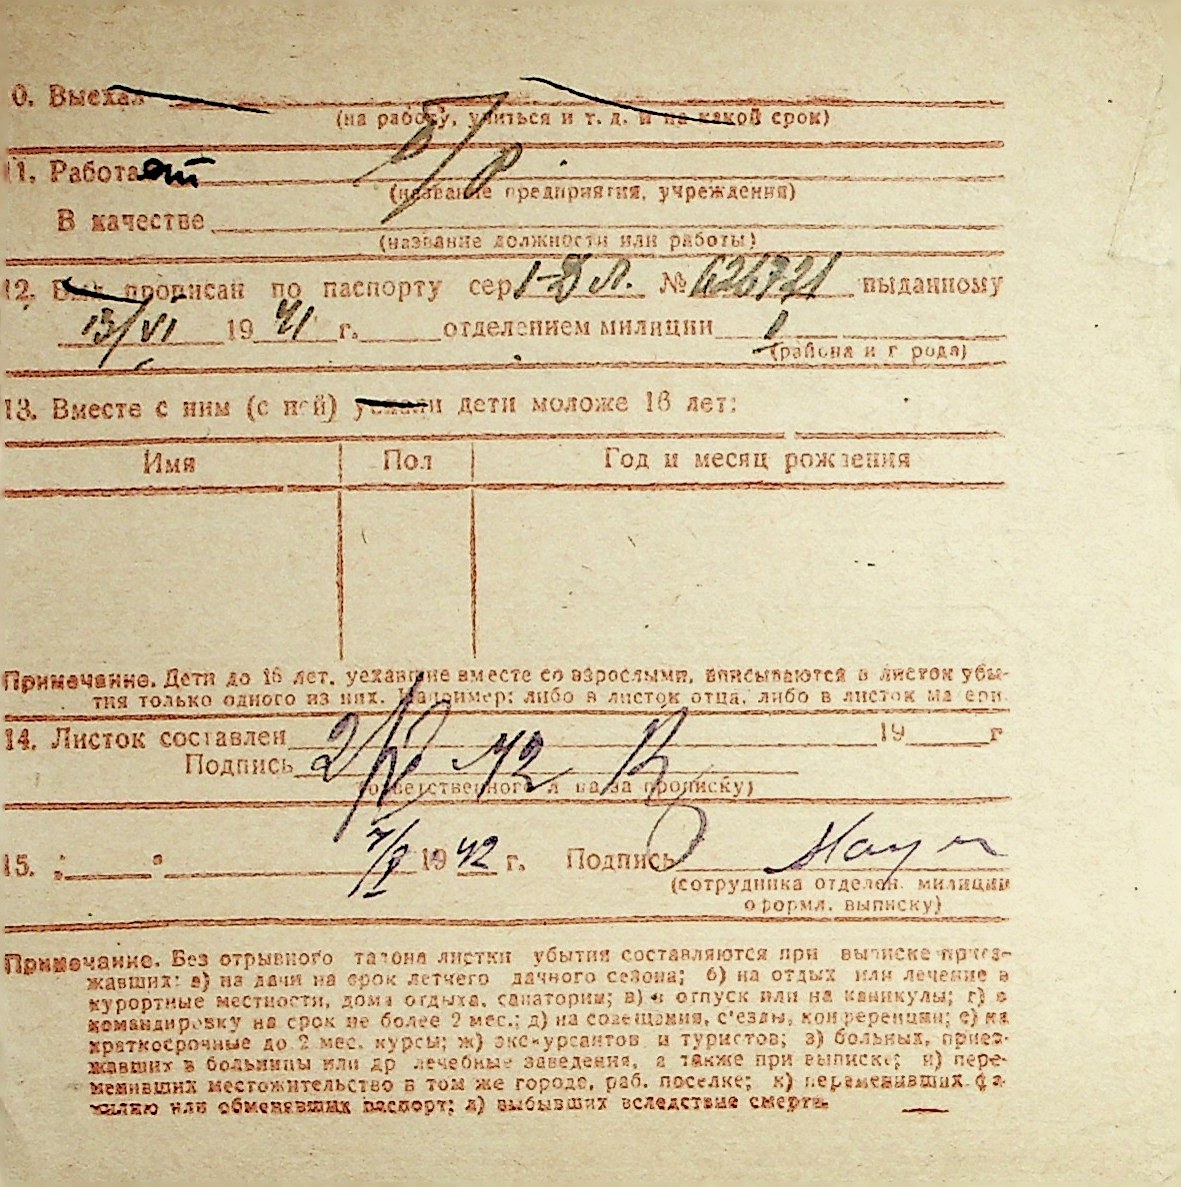 0. Выехал
(на работу, учиться и т. д. и на какой срок)
11. Работает б/р
(название предприятия, учреждения)
В качестве
(название должности или работы)
12. Был прописан по паспорту сер. I-ДЛ. № 626721 выданному
13/VI 1941 г. отделением милиции
(района и города)
13. Вместе с ним (с ней) уехали дети моложе 16 лет:
Имя Пол Год и месяц рождения
Примечание. Дети до 16 лет, уехавшие вместе со взрослыми, вписываются в листок убы-
тия только одного из них. Например: либо в листок отца, либо в листок матери.
14. Листок составлен 19 г
Подпись 42
(ответственного лица за прописку)
15. " " 1942 г. Подпись
(сотрудника отделен. милиции
оформл. выписку)
Примечание. Без отрывного талона листки убытия составляются при выписке приез-
жавших: а) на дачи на срок летнего дачного сезона; б) на отдых или лечение в
курортные местности, дома отдыха, санатории; в) в отпуск или на каникулы; г) в
командировку на срок не более 2 мес.; д) на совещания, с'езды, конференции; е) на
краткосрочные до 2 мес. курсы; ж) экскурсантов и туристов; з) больных, приез-
жавших в больницы или др лечебные заведения, а также при выписке; и) пере-
менивших местожительство в том же городе, раб. поселке; к) переменивших фа-
милию или обменявших паспорт; л) выбывших вследствие смерти.